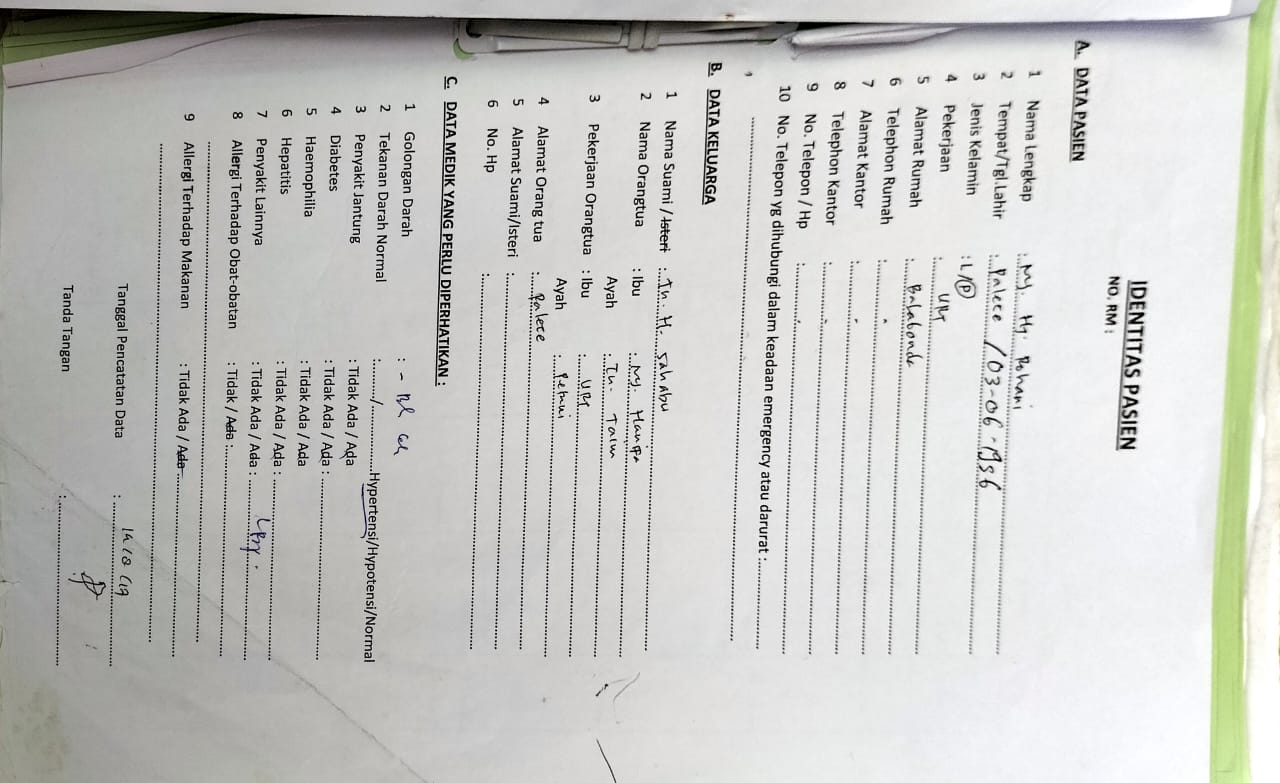 IDENTITAS PASIEN
NO. RM :
A. DATA PASIEN
1 Nama Lengkap : Ny. Hj. Rohani
2 Tempat/Tgl.Lahir : Palece / 03-06-1956
3 Jenis Kelamin : L/P
4 Pekerjaan : URT
5 Alamat Rumah :
6 Telephon Rumah : -
7 Alamat Kantor : -
8 Telephon Kantor : -
9 No. Telepon / Hp : -
10 No. Telepon yg dihubungi dalam keadaan emergency atau darurat :
B. DATA KELUARGA
1 Nama Suami / Isteri : Tn. H. Sahabu
2 Nama Orangtua : Ibu : Ny. Hanifa
Ayah : Tn. Taim
3 Pekerjaan Orangtua : Ibu : URT
Ayah : Petani
4 Alamat Orang tua : Palece
5 Alamat Suami/Isteri :
6 No. Hp :
C. DATA MEDIK YANG PERLU DIPERHATIKAN :
1 Golongan Darah : -
2 Tekanan Darah Normal : ........./..................Hypertensi/Hypotensi/Normal
3 Penyakit Jantung : Tidak Ada / Ada
4 Diabetes : Tidak Ada / Ada :
5 Haemophilia : Tidak Ada / Ada
6 Hepatitis : Tidak Ada / Ada :
7 Penyakit Lainnya : Tidak Ada / Ada :
8 Allergi Terhadap Obat-obatan : Tidak / Ada :
9 Allergi Terhadap Makanan : Tidak Ada / Ada
Tanggal Pencatatan Data :
Tanda Tangan :